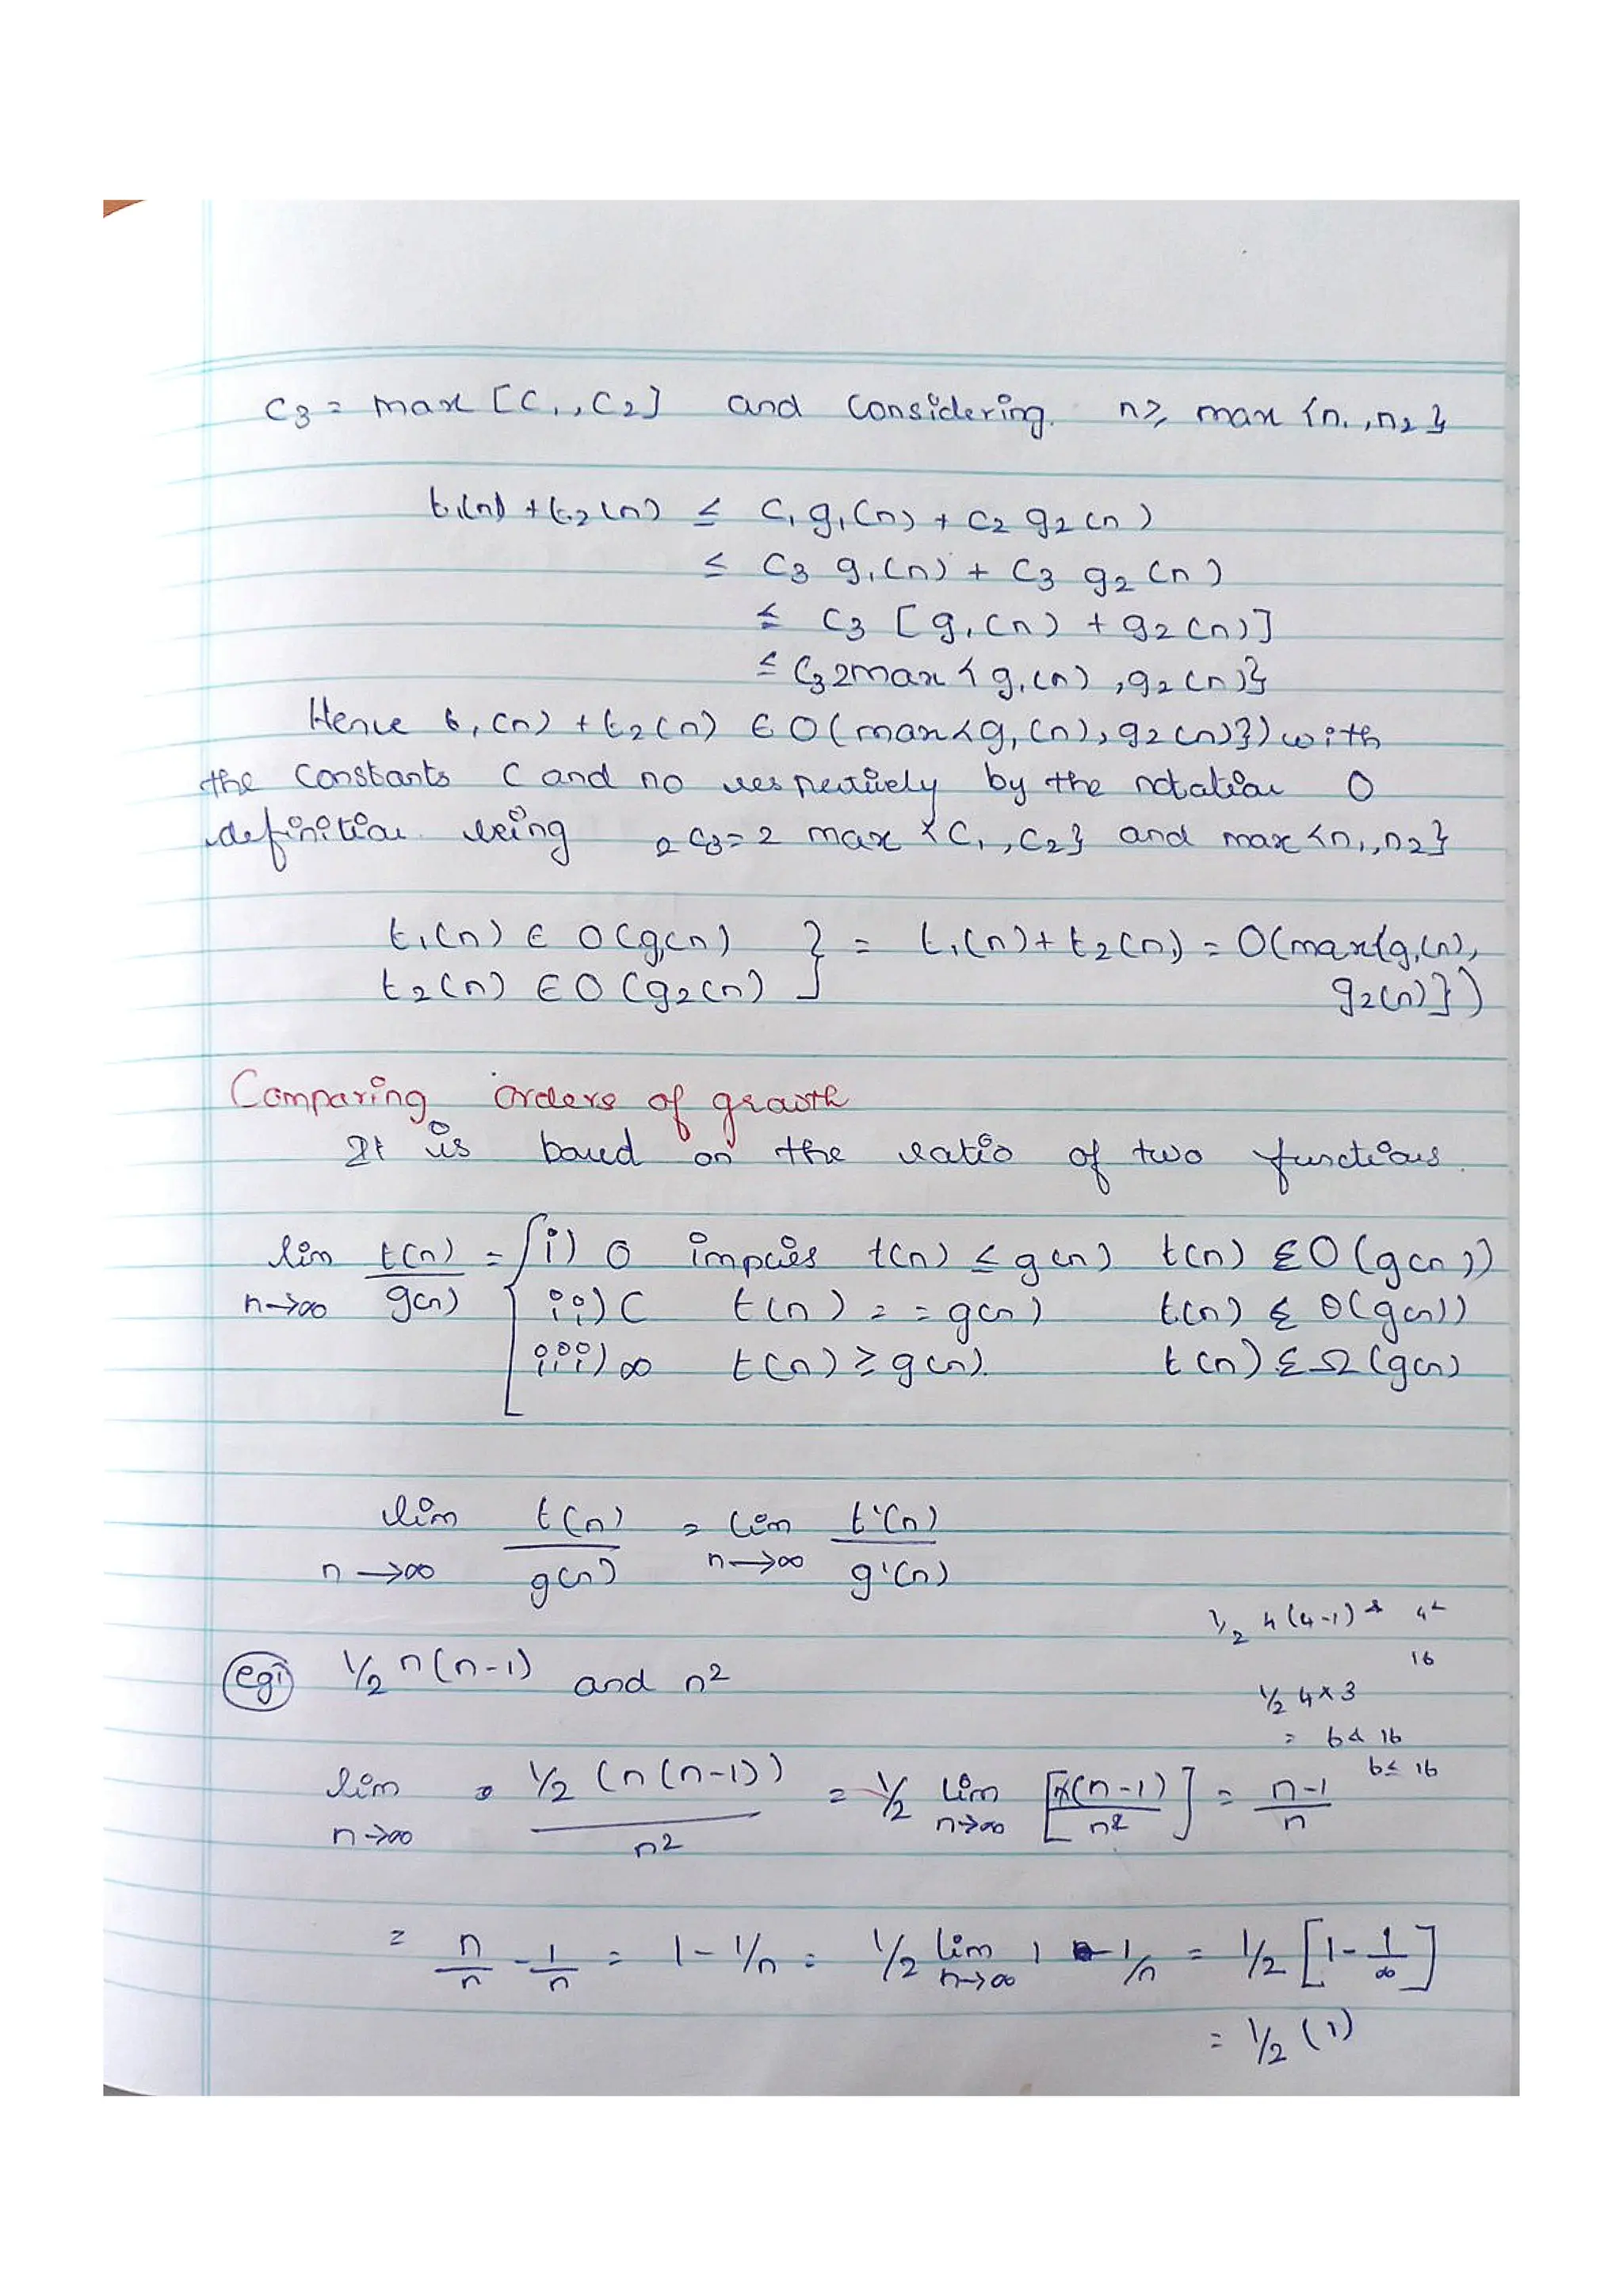 C3 = max [C1, C2] and Considering. n ≥ max {n1, n2}
t1(n) + t2(n) ≤ C1 g1(n) + C2 g2(n)
≤ C3 g1(n) + C3 g2(n)
≤ C3 [g1(n) + g2(n)]
≤ C3 2max {g1(n), g2(n)}
Hence t1(n) + t2(n) ∈ O(max{g1(n), g2(n)}) with
the Constants C and no respectively by the notation O
definition being 2C3 = 2 max {C1, C2} and max {n1, n2}
t1(n) ∈ O(g1(n) } = t1(n) + t2(n) = O(max{g1(n),
t2(n) ∈ O(g2(n) } g2(n)})
Comparing orders of growth
It is based on the ratio of two functions.
lim n→∞ t(n)/g(n) = { i) 0 implies t(n) ≤ g(n) t(n) ∈ O(g(n))
ii) C t(n) = = g(n) t(n) ∈ Θ(g(n))
iii) ∞ t(n) ≥ g(n). t(n) ∈ Ω(g(n)
lim n→∞ t(n)/g(n) = lim n→∞ t'(n)/g'(n)
1/2 4(4-1) 4²
16
eg1 1/2 n(n-1) and n²
1/2 4×3
= 6 < 16
6 ≤ 16
lim n→∞ 1/2 (n(n-1))/n² = 1/2 lim n→∞ [n(n-1)/n²] = n-1/n
= n/n - 1/n = 1 - 1/n = 1/2 lim n→∞ 1 - 1/n = 1/2 [1 - 1/∞]
= 1/2 (1)